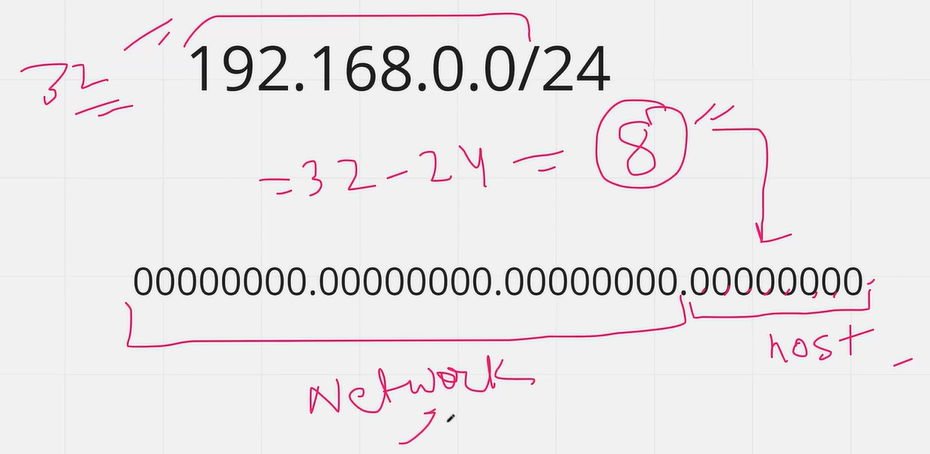 32 192.168.0.0/24
=32-24= 8
00000000.00000000.00000000.00000000
host
Network